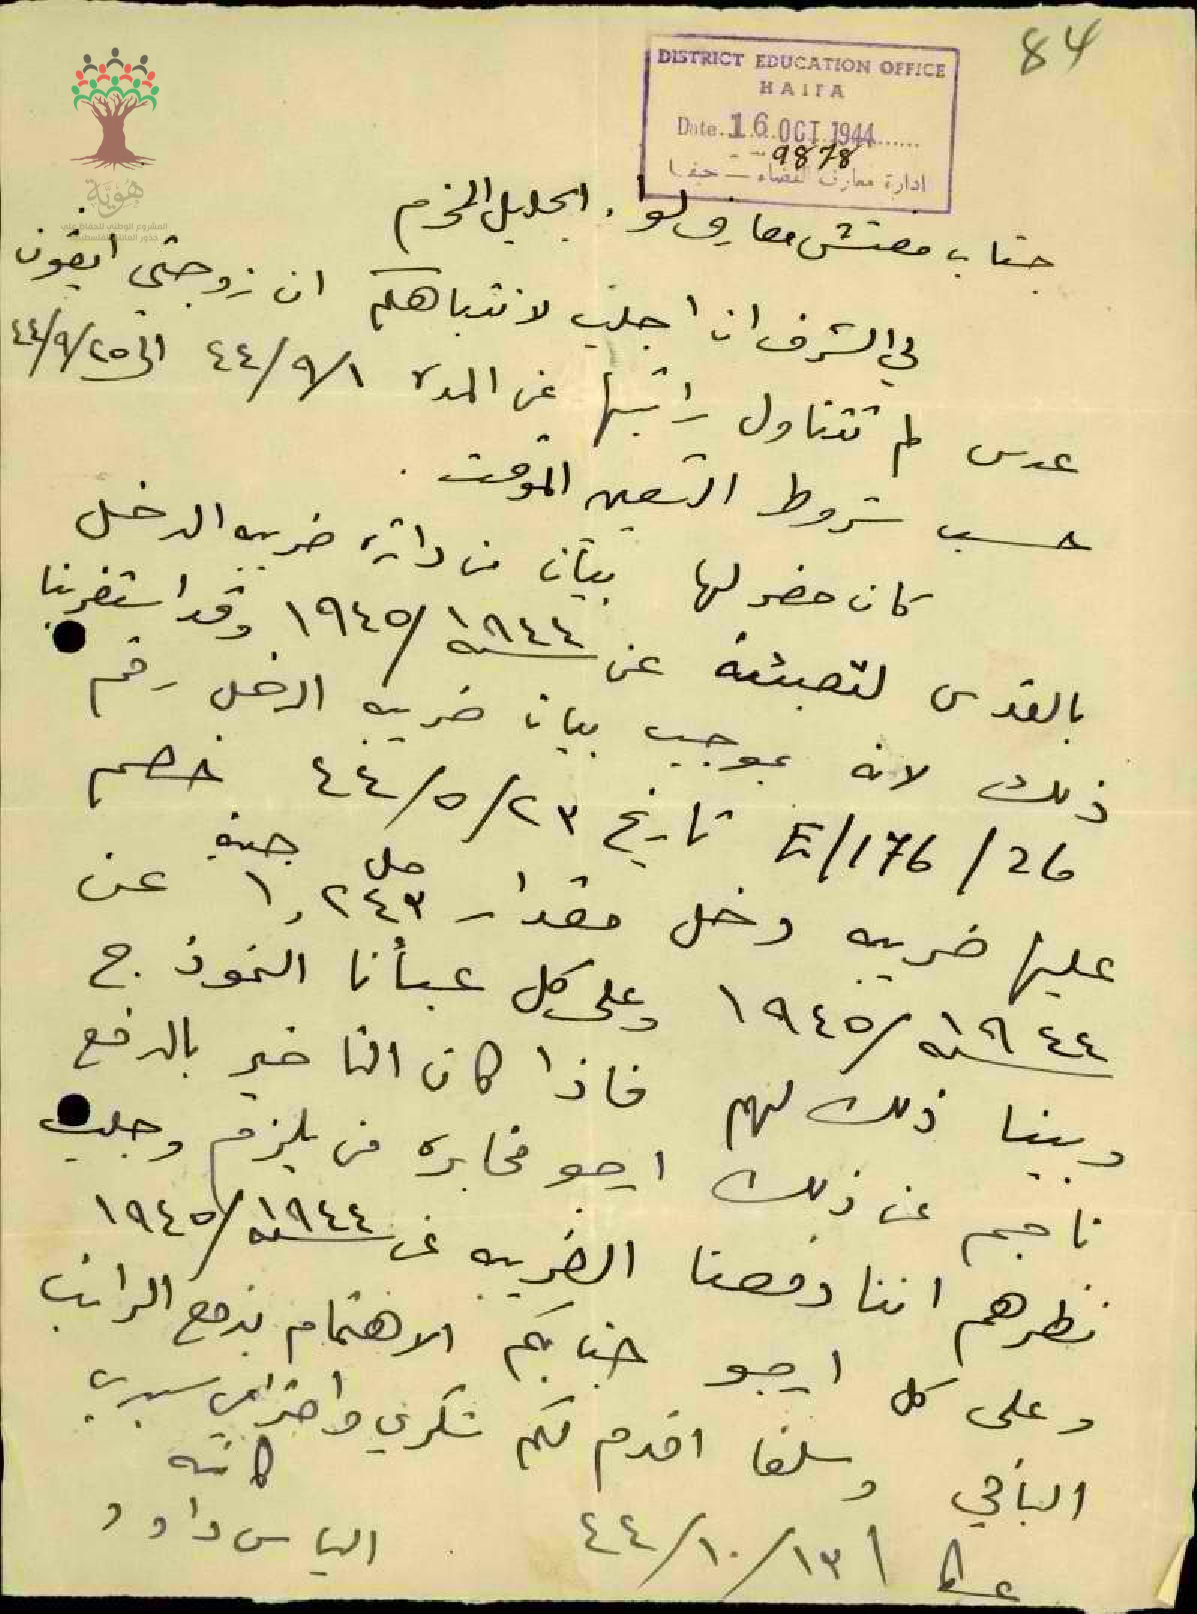 84
DISTRICT EDUCATION OFFICE
HAIFA
Date 16 OCT 1944
9878
ادارة معارف القضاء – حيفا
هُوِيَّة
المشروع الوطني للحفاظ على
جذور العائلة الفلسطينية
جناب مفتش معارف لواء الجليل المحترم
لي الشرف ان اجلب لانتباهكم ان زوجتي
عدس لم تتناول راتبها عن المدة ٤٤/٩/١ الى ٤٤/٩/٢٥
حسب شروط التعيين المؤقت .
كان حضر لها بيان من دائرة ضريبه الدخل
بالقدس لتعبئته عن سنه ١٩٤٤/١٩٤٥ وقد استغربنا
ذلك لانه بموجب بيان ضريبه الدخل رقم
E/176/26 تاريخ ٤٤/٥/٢٣ خصم
عليها ضريبه دخل مقدار ١,٢٤٣ مل جنيه عن
سنه ١٩٤٤/١٩٤٥ وعلى كل عبأنا النموذج
وبينا ذلك لهم فاذا كان التاخير بالدفع
ناجم عن ذلك ارجو مخابرة من يلزم وجلب
نظرهم اننا دفعنا الضريبه عن سنه ١٩٤٤/١٩٤٥
وعلى كل ارجو جنابكم الاهتمام بدفع الراتب
الباقي وسلفا اقدم لكم شكري واحترامي سيدي
عكا ٤٤/١٠/١٣
كاتبه
الياس داود